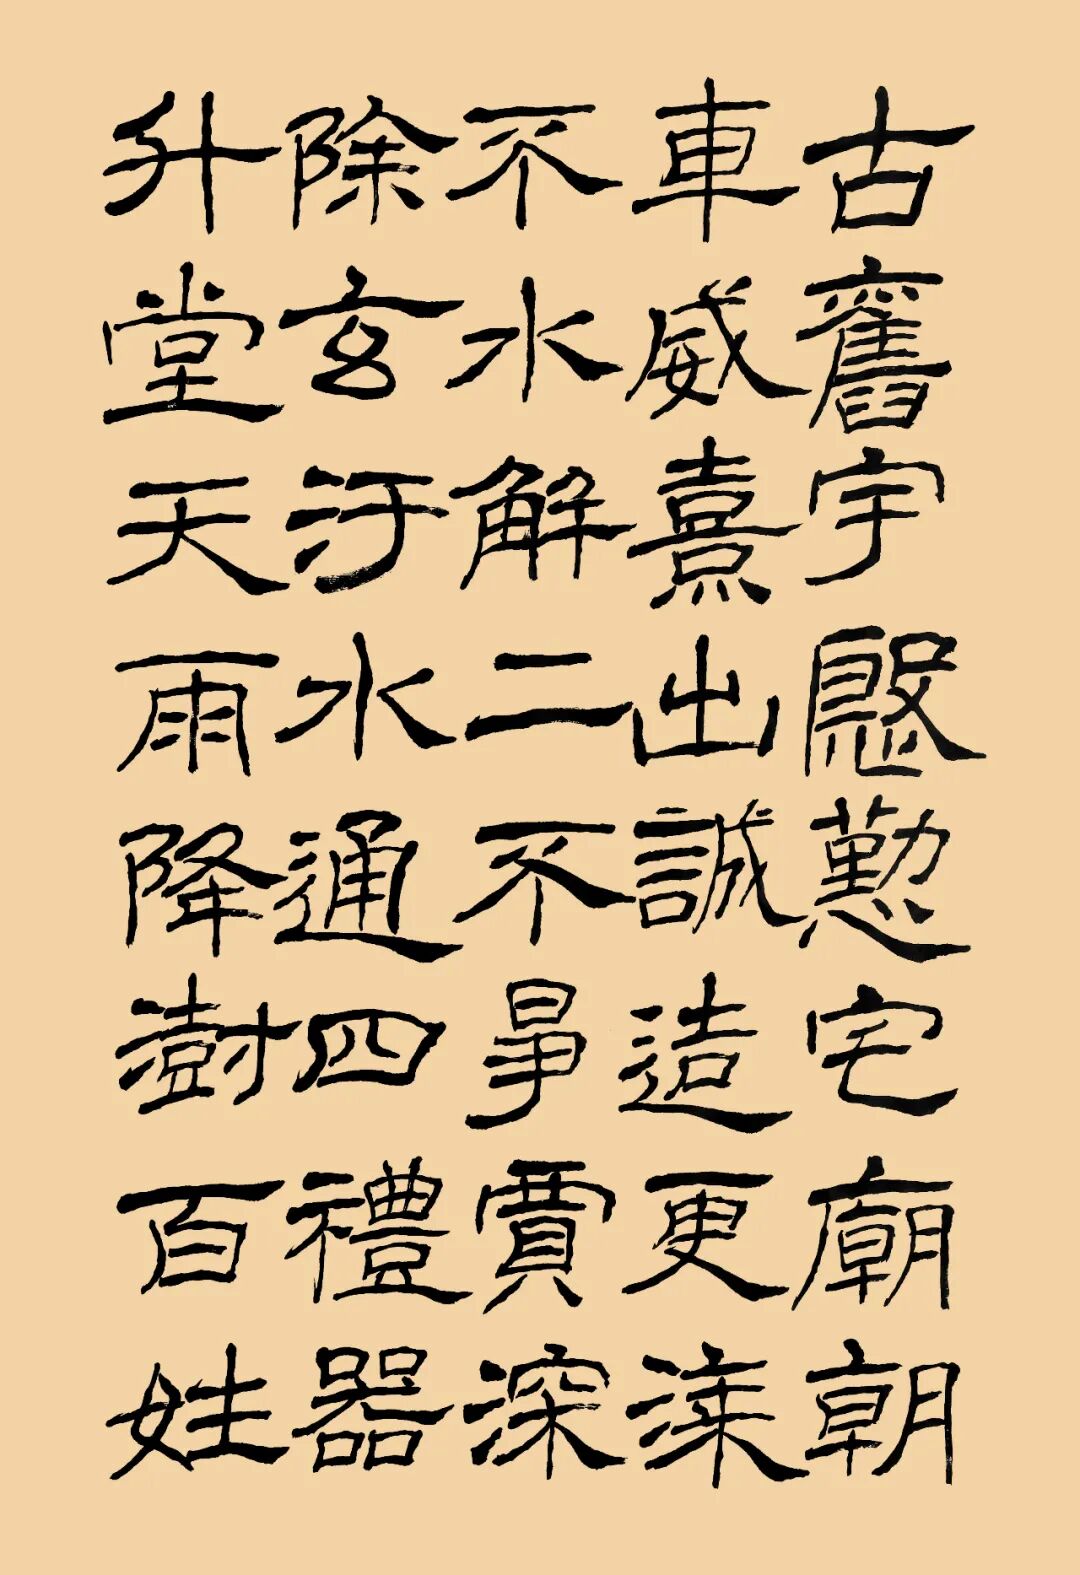 古舊宇慇懃宅廟朝
車威熹出誠造更漆
不水解二不爭賈深
除玄汙水通四禮器
升堂天雨降澍百姓